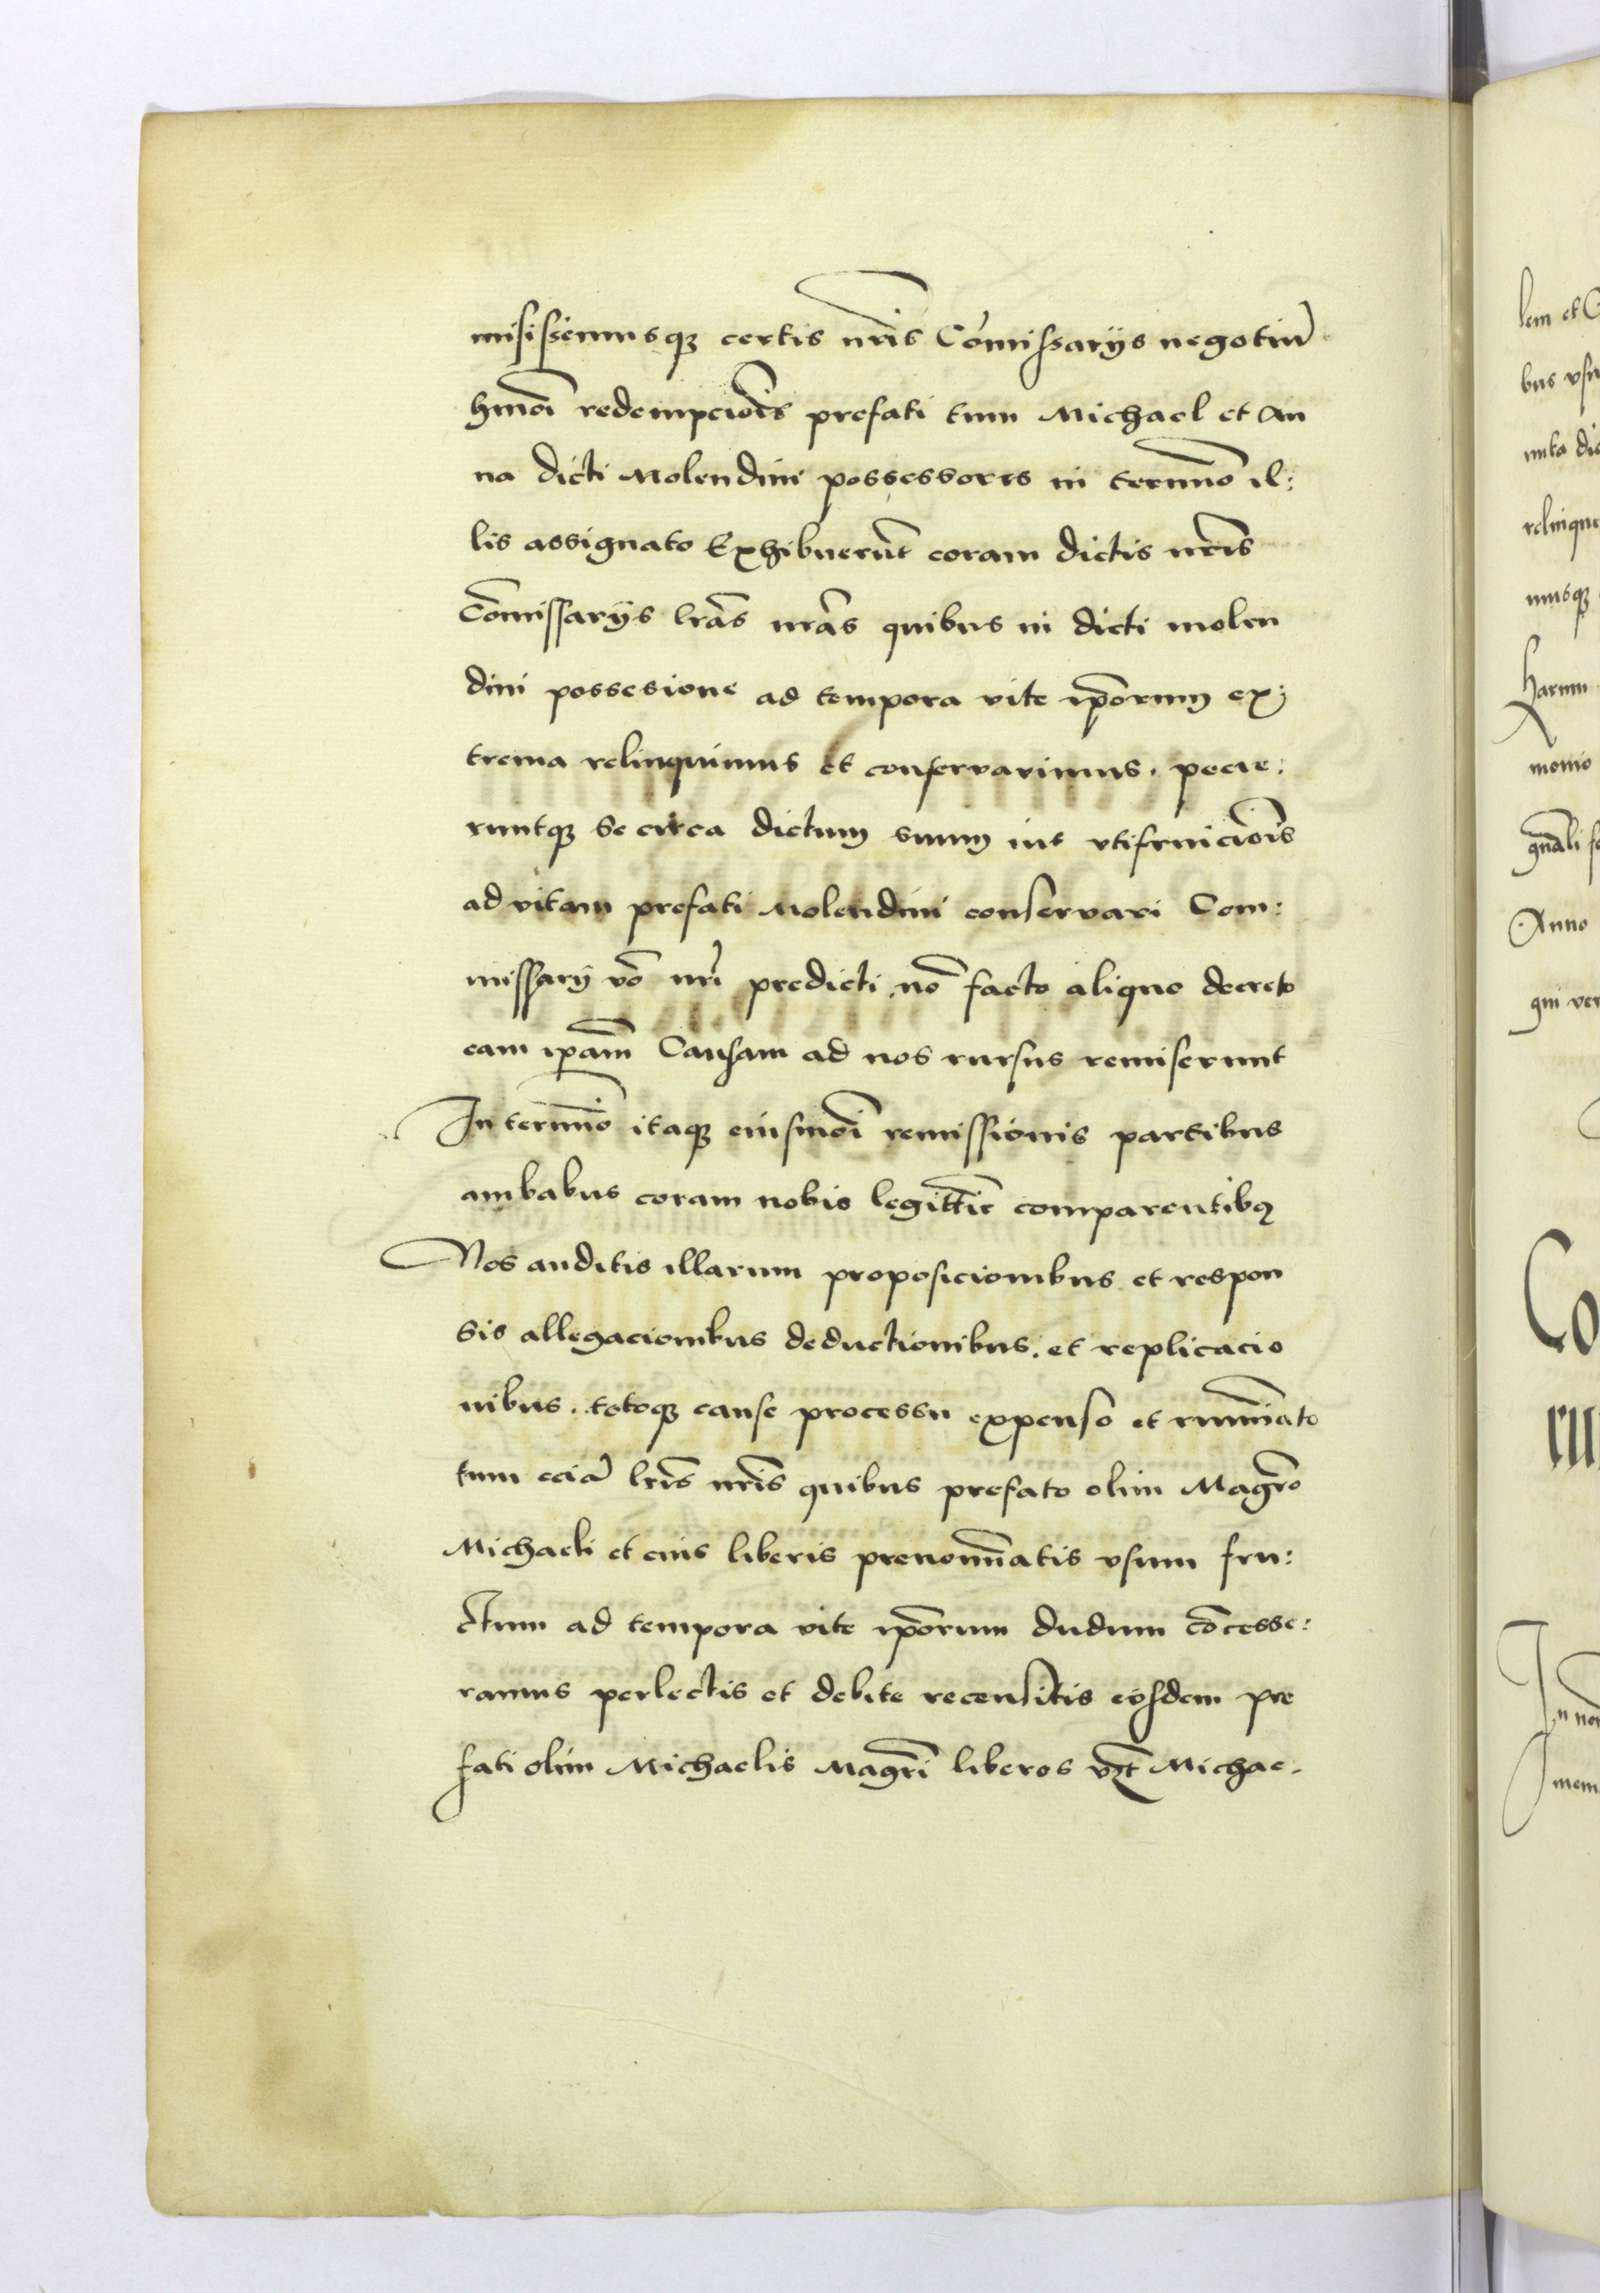 misissemusq3 certis nr̃is Cõmissarÿs negotiũ
hmõi redempciõis prefati tum Michael et An
na dicti Molendini possessores in termĩo il:
lis assignato Exhibuerũt coram dictis nr̃is
Cõmissarÿs l̃ras nr̃as quibus in dicti molen
dini possesione ad tempora vite ip̃orum ex:
trema relinquimus et conservavimus. pecie:
runtq3 Se circa dictum suum ius vtifruiciõis
ad vitam prefati Molendini conservari Com:
missarÿ võ nr̃i predicti nõ facto aliquo decreto
eam ip̃am Causam ad nos rursus remiserunt
In termĩo itaq3 eiusmõi remissionis partibus
ambabus coram nobis legittĩe comparentibq
Nos auditis illarum proposicionibus et respon
sis allegacionibus deductionibus. et replicacio
nibus. totoq3 cause processu expenso et rumĩato
tum eciã lr̃is nr̃is quibus prefato olim Magr̃o
Michaeli et eius liberis prenomĩatis vsum fru:
ctum ad tempora vite ip̃orum dudum cõcesse:
ramus perlectis et debite recensitis eosdem pre
fati olim Michaelis Magr̃i liberos vz̃t Michae.
lem et
bus
relinque
musq3
Harum
monio
gnãli
Anno
qui
Co
In